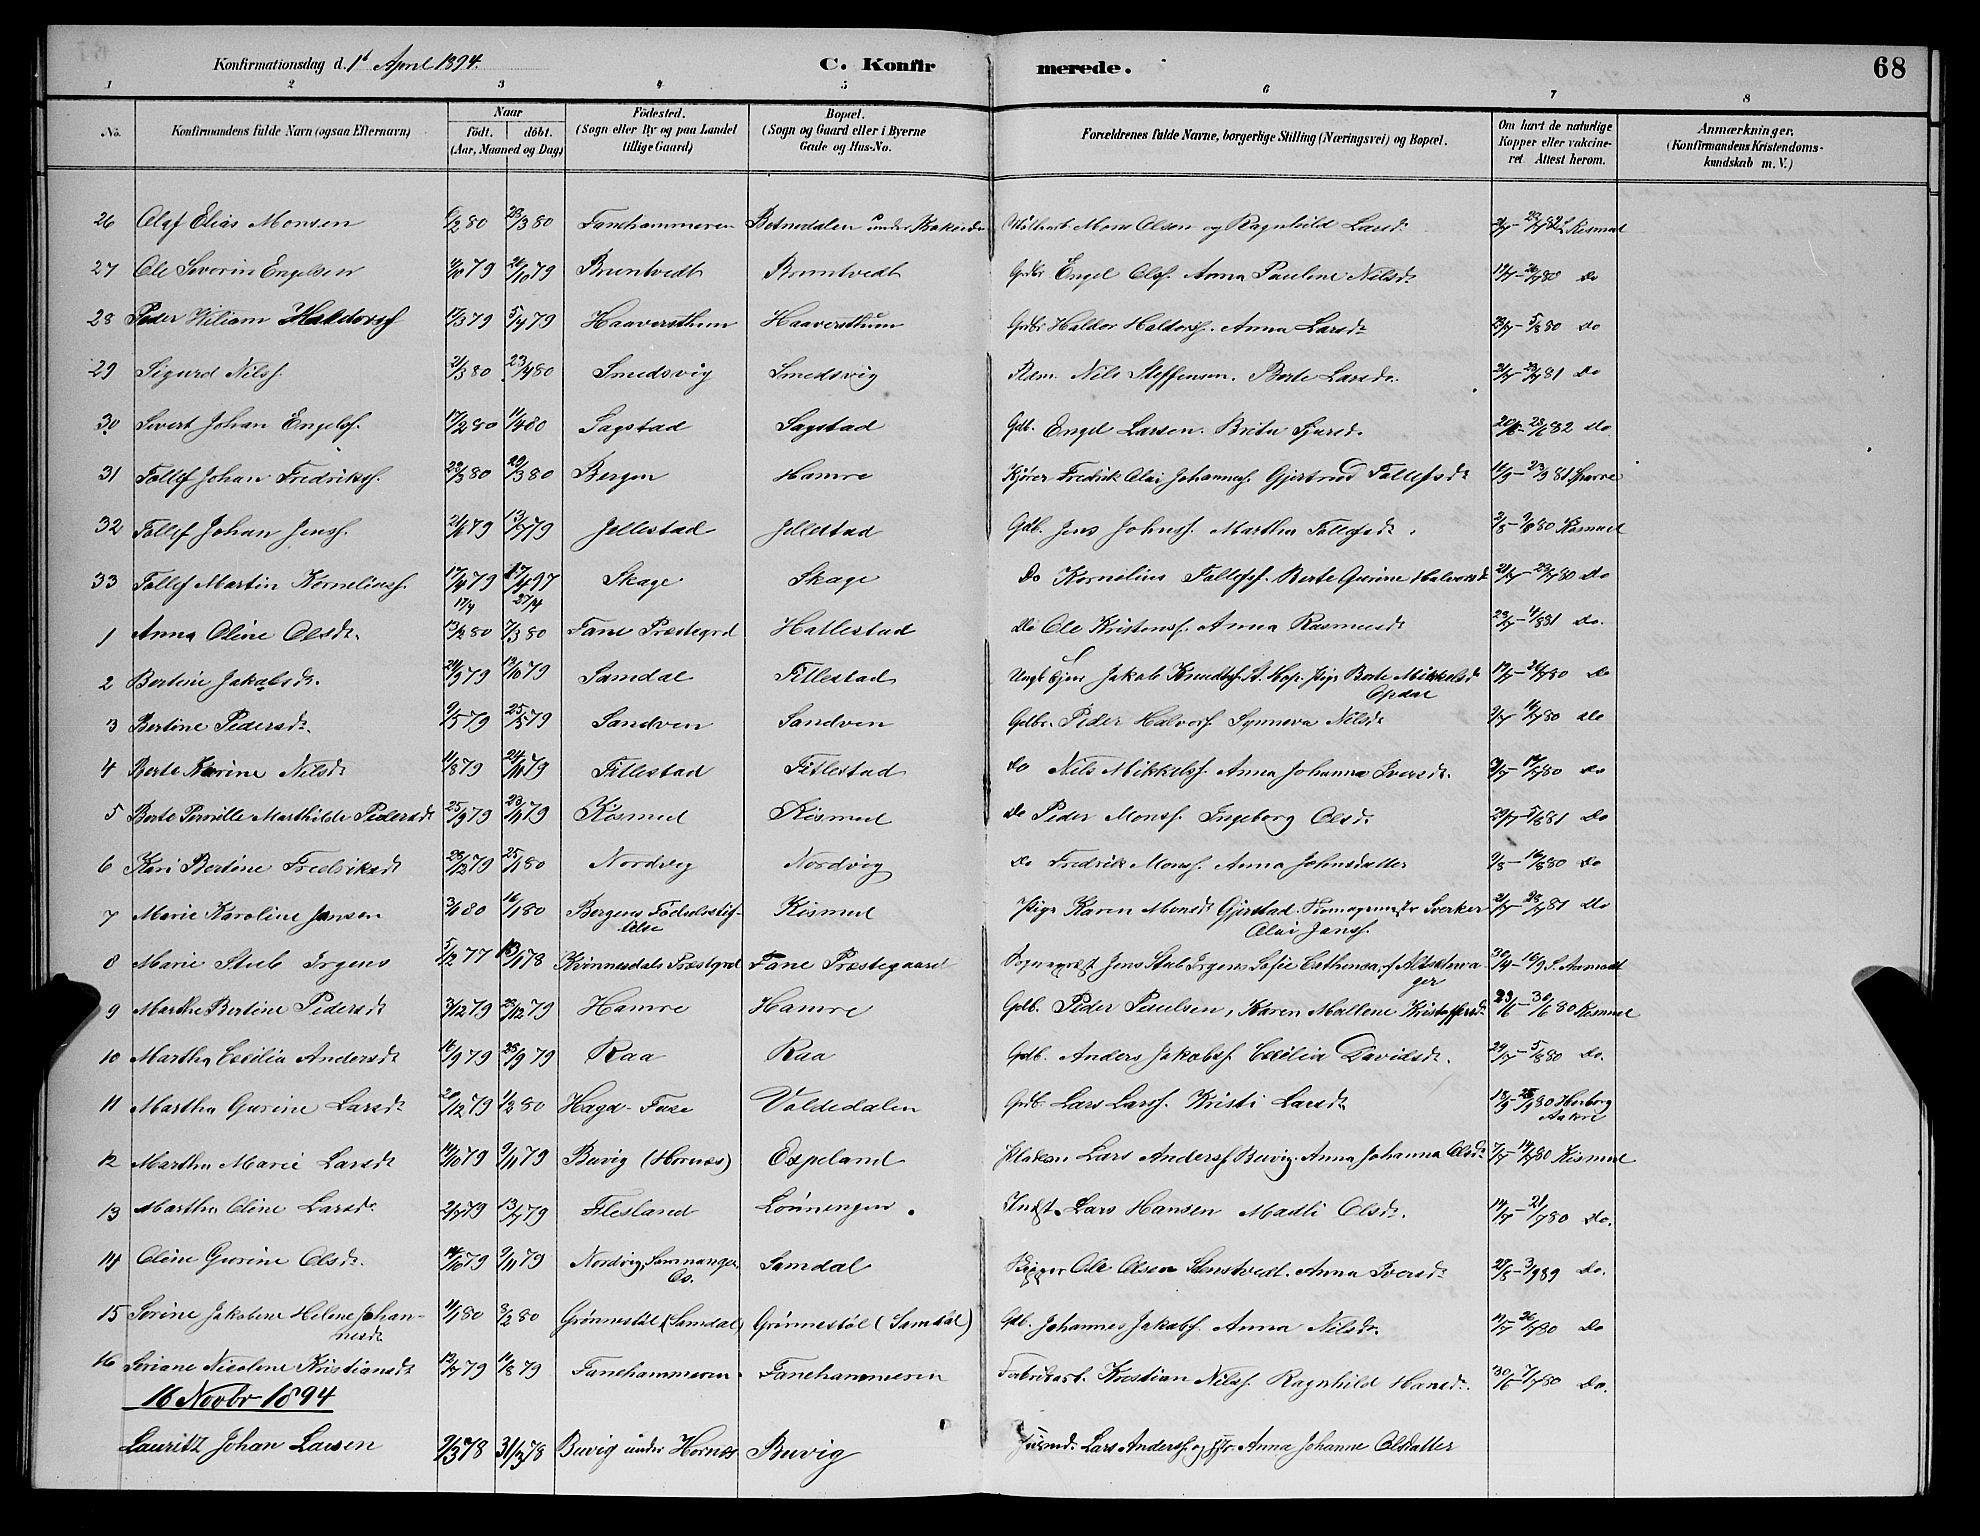 Konfirmationsdag d. 1ste April 1894.
C. Konfirmerede.
68
1 2 3 4 5 6 7 8
No. Konfirmandens fulde Navn (ogsaa Efternavn) Naar födt. döbt. (Aar, Maaned og Dag) Födested. (Sogn eller By og paa Landet tillige Gaard) Bopæl. (Sogn og Gaard eller i Byerne Gade og Hus-No. Forældrenes fulde Navne, borgerlige Stilling (Næringsvei) og Bopæl. Om havt de naturlige Kopper eller vakcineret Attest herom. Anmærkninger. (Konfirmandens Kristendomskundskab m. V.)
26 Olaf Elias Monsen 6/2 80 28/3 80 Fanehammeren Botnedalen under Mons Olsen og Ragnhild Larsd.
27 Ole Severin Engelsen 26/10 79 Bruntvedt Bruntvedt Gdbr Engel Olsf. Anna Pauline Nilsd. Do
28 Peder Wiliam Haldorsf 17/3 79 5/4 79 Haaversthun Haaversthun Gdbr Haldor Haldorsf. Anna Larsdr 5/8 80 Do
29 Sigurd Nilsf. 21/3 80 23/4 80 Smedsvig Smedsvig Nils Steffensen. Berte Larsdr. Do
30 Sivert Johan Engelsf. 17/2 80 11/4 80 Sagstad Sagstad Gdb. Engel Larsen. Brita Sjursd. Do
31 Tollef Johan Fredriksf. 29/3 80 Bergen Hamre Kjører Fredrik Olai Johannesf. Gjertrud Tollefsdr
32 Tollef Johan Jensf. 13/7 79 Jellestad Jellestad Gdb. Jens Johnsf. Martha Tollefsdr.
33 Tollef Martin Korneliusf. 17/4 79 27/4 97 Skage Skage Do Kornelius Tollefsf. Berte Gurine Halvorsd Do
17/4 27/4
1 Anna Oline Olsdr. 13/2 80 7/3 80 Fane Præstegrd Hatlestad Do Ole Kristensf. Anna Rasmusdr Do.
2 Bertine Jakobsdr. 24/9 79 12/10 79 Samdal Titlestad Jakob Knudsf. Hop. Pige Berte Mikkelsd Do
Opdal
3 Bertine Pedersdr. 9/5 79 25/5 79 Sandven Sandven Gdbr. Peder Halvorsf Synneva Nilsdr Do
4 Berte Karine Nilsdr 11/8 79 Titlestad Titlestad Do Nils Mikkelsf. Anna Johanna Iversdr. Do
5 Berte Pernille Marthilde Pedersdr 25/9 79 Kismul Kismul Do Peder Monsf. Ingeborg Olsdr. Do
6 Kari Bertine Fredriksdr 28/12 79 25/1 80 Nordvig Nordvig Do Fredrik Monsf. Anna Johnsdatter Do
7 Marie Karoline Jansen 3/1 80 Bergens Födselsstiftelse Kismul Pige Karen Monsdr Gjerstad. Sverker Do
Olai Jansf.
8 Marie Stub Irgens 5/12 77 13/1 78 Kvinnesdals Præstgrd Fane Præstegaard Sognepræst Jens Stub Irgens Sofie Cathensa f Altsedvager
9 Marthe Bertine Pedersdr 3/12 79 28/12 79 Hamre Hamre Gdb. Peder Paulsen, Karen Mallene Kristoffersdr 23/6 - 30/6 80 Kismul
10 Martha Cecilia Andersdr 16/9 79 28/9 79 Raa Raa Gdb. Anders Jakobsf Cecilia Davidsdr. 29/7 - 5/8 80 Do.
11 Martha Gurine Larsdr 20/12 79 1/2 80 Hagd-Fane Valdedalen Gdb. Lars Larsf. Kristi Larsdr Herborg
12 Martha Marie Larsdr 14/10 79 9/11 79 Buvig (Hornæs) Espeland Lars Andersf Buvig. Anna Johanna Olsdr 7/7 - 14/7 80 Kismul
13 Martha Oline Larsdr. 2/7 79 13/7 79 Flesland Lönningen. Indst. Lars Hansen Madli Olsdr. 14/7 - 21/7 80 Do.
14 Oline Gurine Olsdr. 14/10 79 9/11 79 Nordvig, Samnanger Samdal Ole Olsen Tenstvedt. Anna Iversdr Do.
Os.
15 Serine Jakobine Helene Johan- 11/1 80 8/2 80 Grönnestöl (Samdal) Grönnestöl (Samdal) Gdb. Johannes Jakobsf. Anna Nilsdr. Do
nesdr
16 Seriane Nicoline Kristiansdr 12/7 79 11/8 79 Fanehammeren. Fanehammeren Fabrikarb. Kristian Nilsf. Ragnhild Hansdr. 30/6 - 7/7 80 Do.
16 Novbr 1894
Lauritz Johan Larsen 9/3 78 31/3 78 Buvig under Hornæs Buvig Lars Andersf. og Anna Johanne Olsdatter